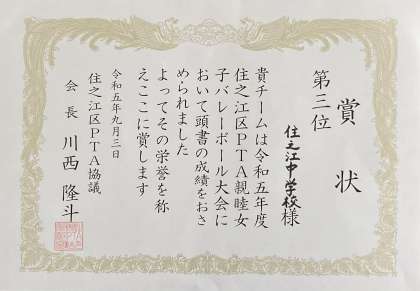 賞状
第三位
住之江中学校様
貴チームは令和五年度
住之江区PTA親睦女
子バレーボール大会に
おいて頭書の成績をおさ
められました
よってその栄誉を称
えここに賞します
令和五年九月三日
住之江区PTA協議
会長 川西隆斗